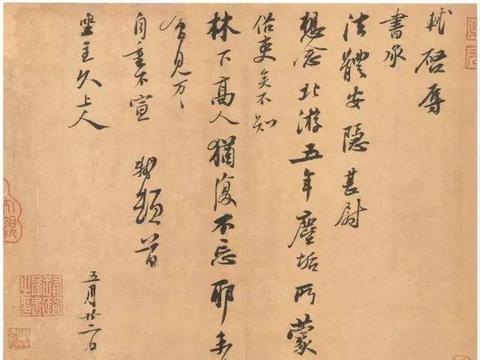 軾啓辱
書承
法體安隱甚尉
想念北游五年塵垢所蒙
俗吏矣不知
林下高人猶復不忘耶未
會見萬〻
自重不宣 軾頓首
坐主久上人
五月廿二日